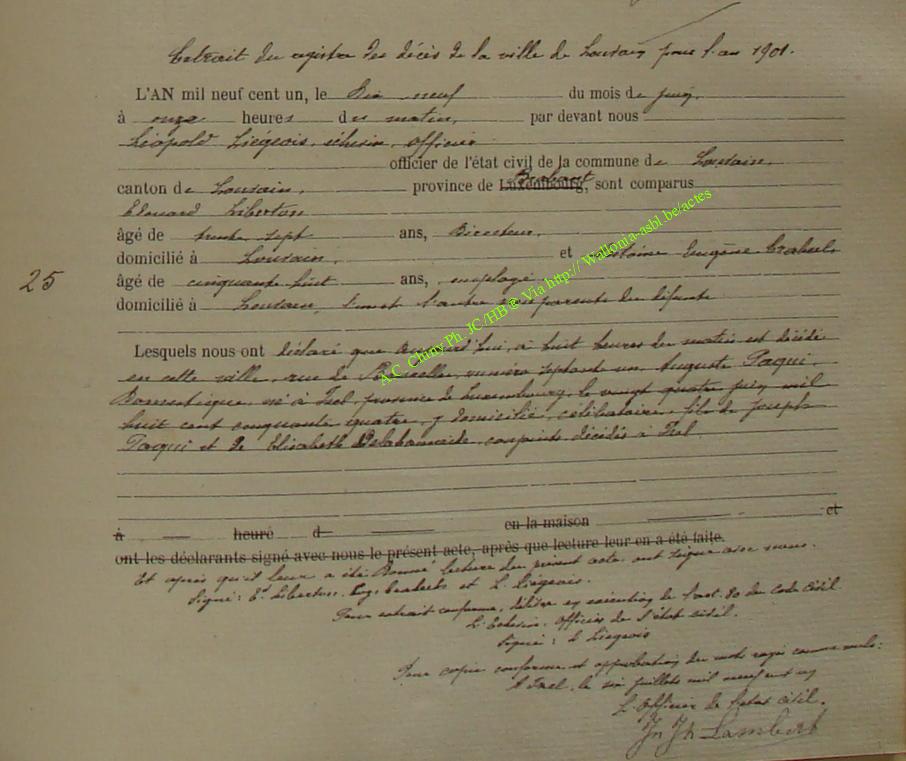 Extrait du registre des décès de la ville de Louvain pour l'an 1901.
L'AN mil neuf cent un, le dix neuf du mois de juin,
à onze heures du matin, par devant nous
Léopold Liégeois, échevin, officier
officier de l'état civil de la commune de Louvain,
canton de Louvain, province de Luxembourg, Brabant sont comparus
Edouard Liberton
âgé de trente sept ans, Directeur,
domicilié à Louvain, et Antoine Eugène
25
âgé de cinquante huit ans, employé
domicilié à Louvain, l'un et l'autre non parents du défunt
Lesquels nous ont déclaré que aujourd'hui, à huit heures du matin est décédé
en cette ville, rue de Bruxelles, numéro septante un, Auguste Paqui
Domestique, né à Izel, province de Luxembourg, le vingt quatre juin mil
huit cent cinquante quatre, y domicilié, célibataire, fils de Joseph
Paqui et de Elisabeth conjoints décédés à Izel
à heure d en la maison et
ont les déclarants signé avec nous le présent acte, après que lecture leur en a été faite.
Et après qu'il leur a été donné lecture du présent acte, ont signé avec nous.
Signé: Ed. Liberton, Eug. et L. Liégeois.
Pour extrait conforme, délivré en exécution de l'art. 80 du Code Civil
L'Echevin, Officier de l'état civil.
Signé: L Liégeois
Pour copie conforme et approbation des mots rayés comme nuls:
A Izel, le six juillet mil neuf cent un
L'Officier de l'état civil,
Jn Jh Lambert
A.C. Chiny Ph. JC/HB © Via http:// Wallonia-asbl.be/actes